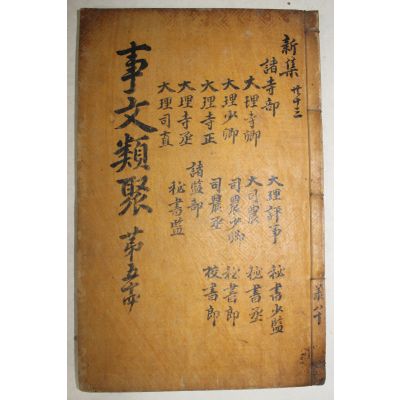 新集
諸寺部
大理寺卿
大理少卿
大理寺正
大理寺丞
大理司直
大理評事
大司農
司農少卿
司農丞
諸監部
秘書監
秘書少監
秘書丞
秘書郎
校書郎
事文類聚 第五